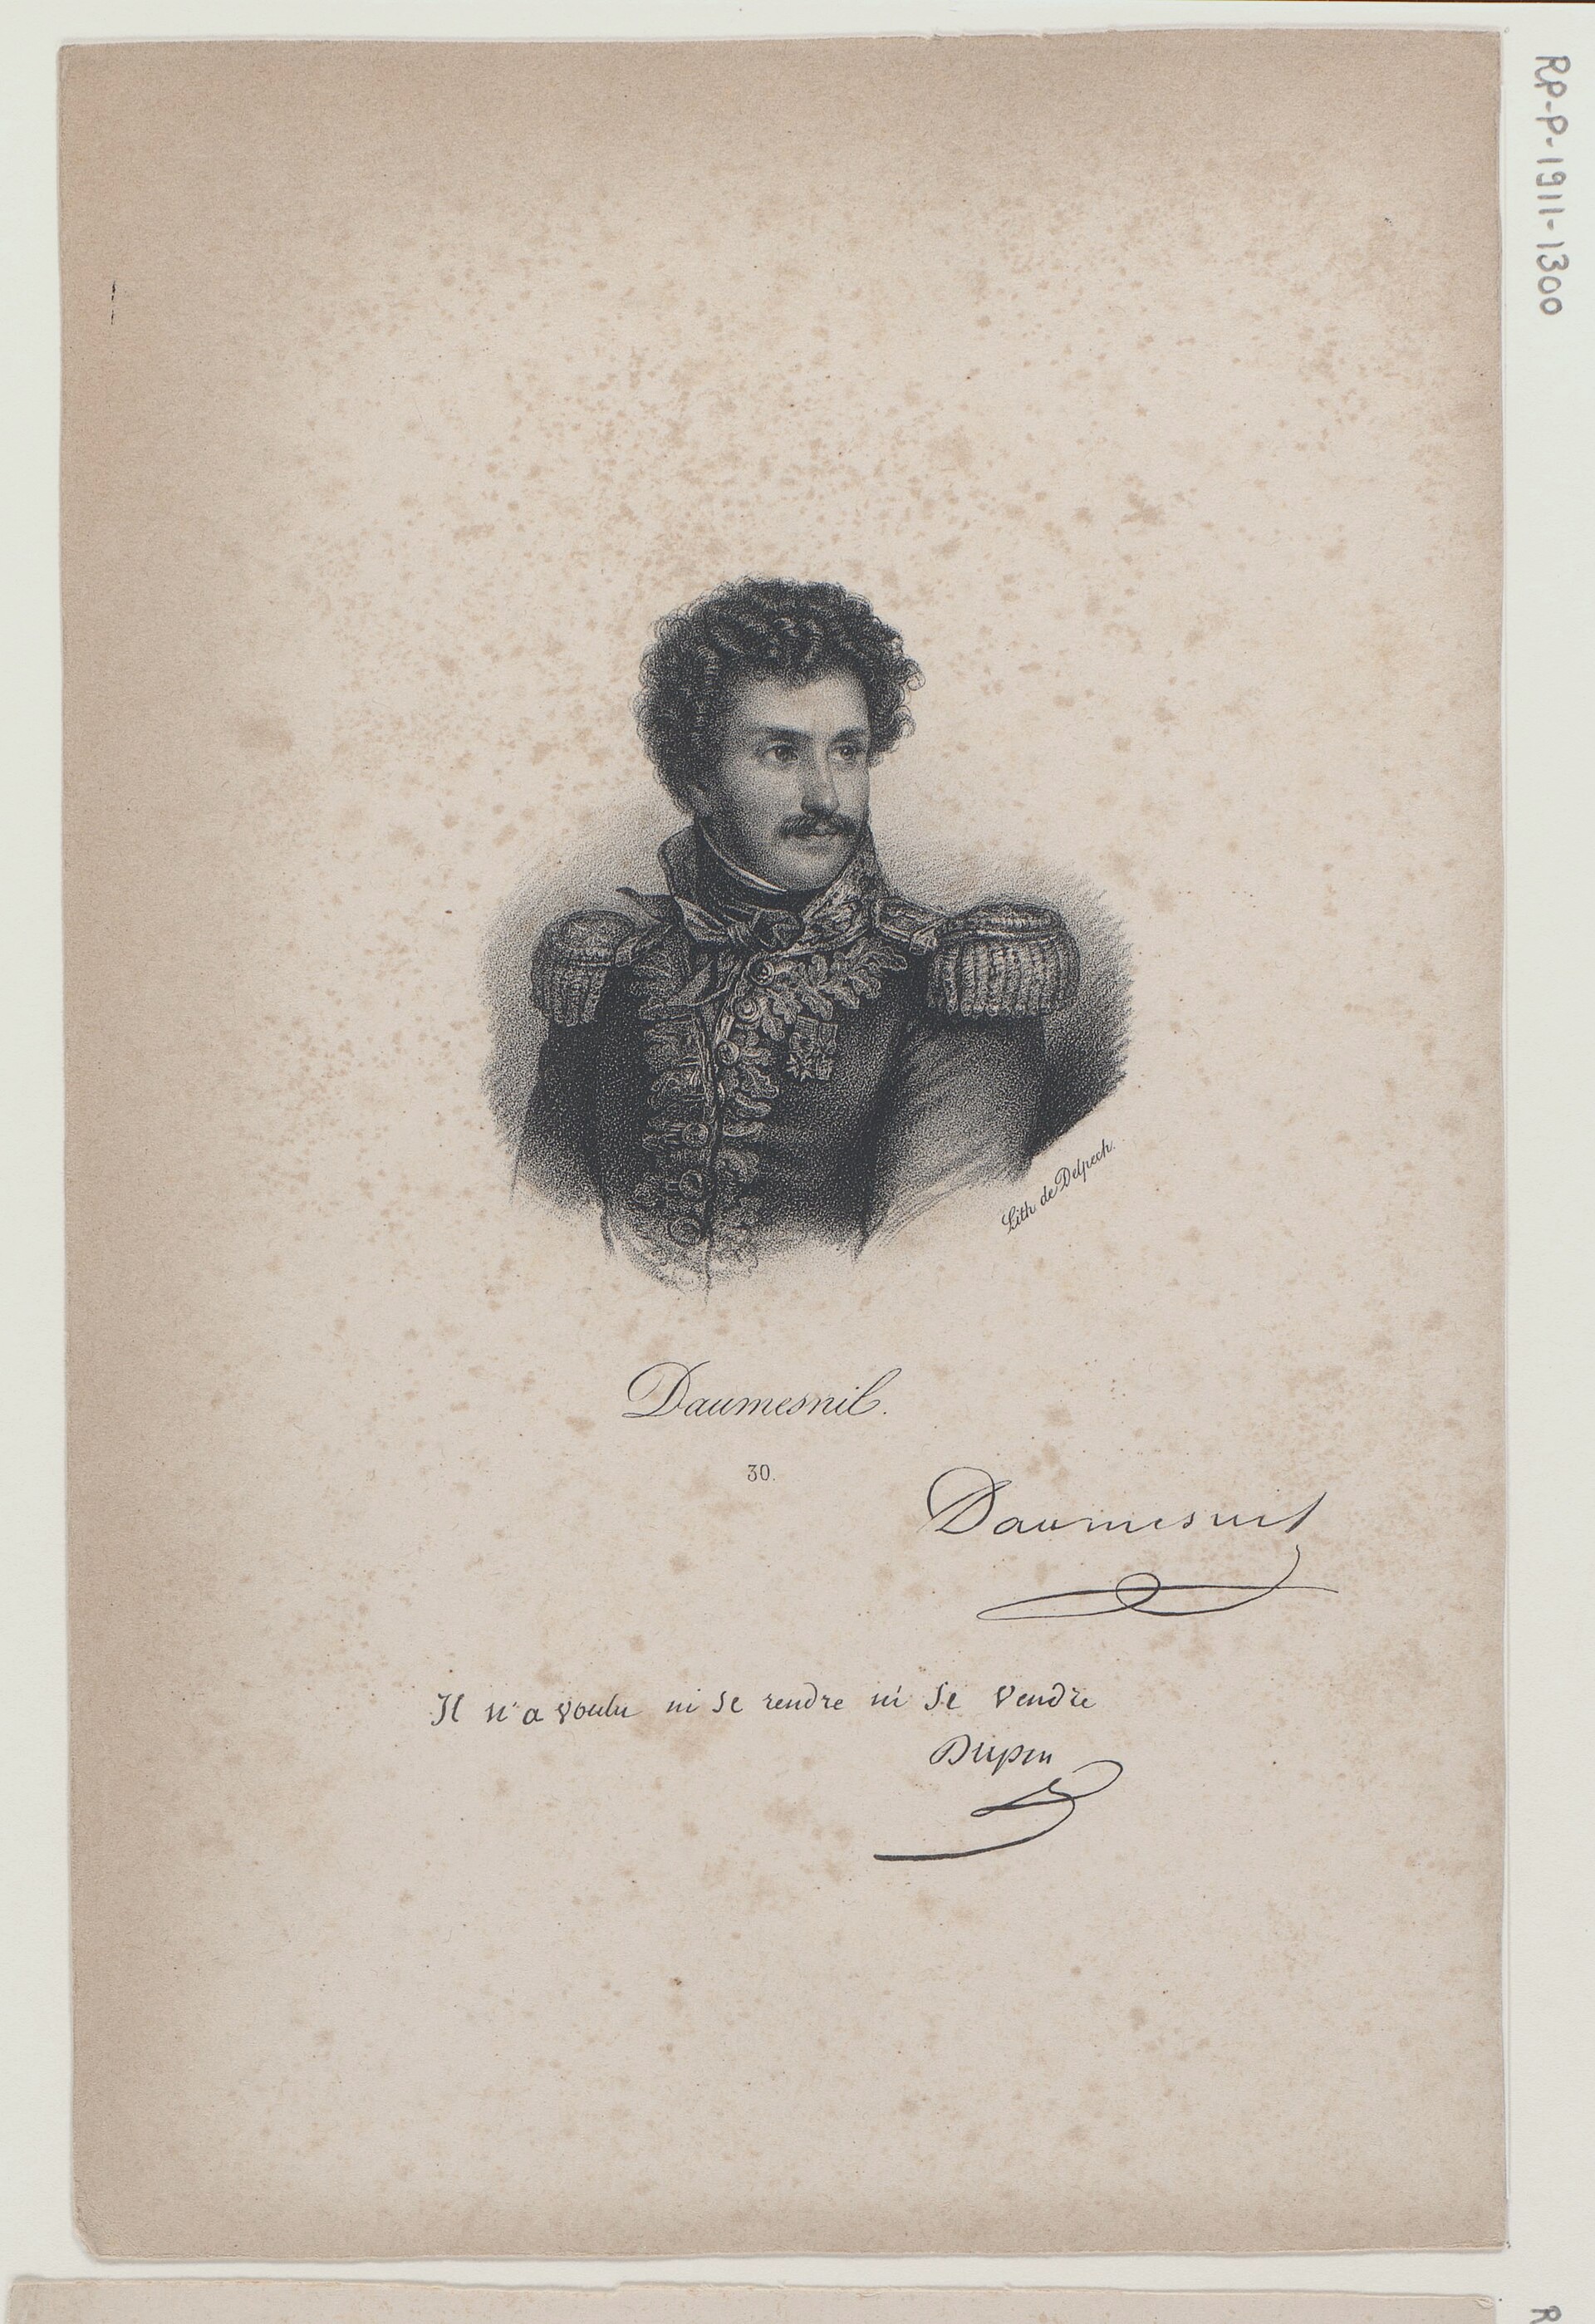 RP-P-1911-1300
Lith de Delpech.
Daumesnil.
30.
Daumesnil
Il n'a voulu ni se rendre ni se vendre
Dupin
R